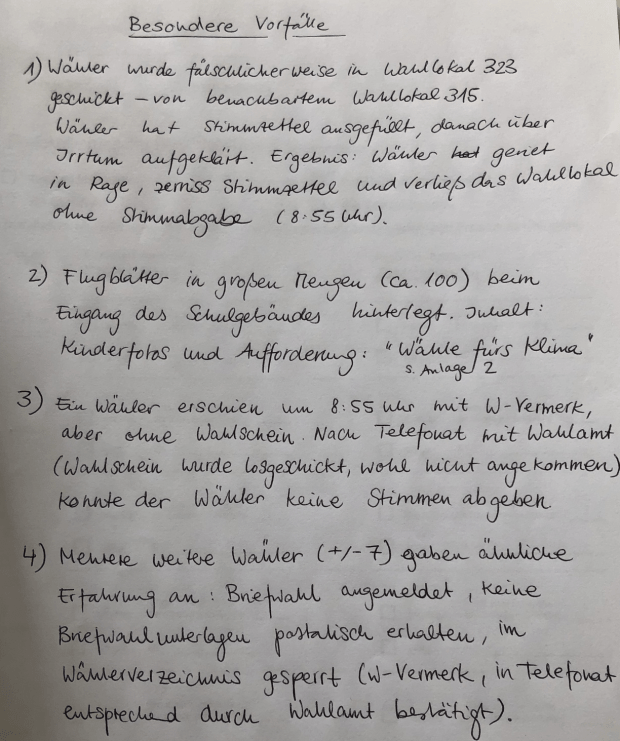 Besondere Vorfälle
1) Wähler wurde fälschlicherweise in Wahllokal 323
geschickt – von benachbartem Wahllokal 315.
Wähler hat Stimmzettel ausgefüllt, danach über
Irrtum aufgeklärt. Ergebnis: Wähler hat geriet
in Rage, zerriss Stimmzettel und verließ das Wahllokal
ohne Stimmabgabe (8:55 Uhr).
2) Flugblätter in großen Mengen (ca. 100) beim
Eingang des Schulgebäudes hinterlegt. Inhalt:
Kinderfotos und Aufforderung: "Wähle fürs Klima"
s. Anlage 2
3) Ein Wähler erschien um 8:55 Uhr mit W-Vermerk,
aber ohne Wahlschein. Nach Telefonat mit Wahlamt
(Wahlschein wurde losgeschickt, wohl nicht angekommen)
konnte der Wähler keine Stimmen abgeben
4) Mehrere weitere Wähler (+/- 7) gaben ähnliche
Erfahrung an: Briefwahl angemeldet, keine
Briefwahlunterlagen postalisch erhalten, im
Wählerverzeichnis gesperrt (W-Vermerk, in Telefonat
entsprechend durch Wahlamt bestätigt).